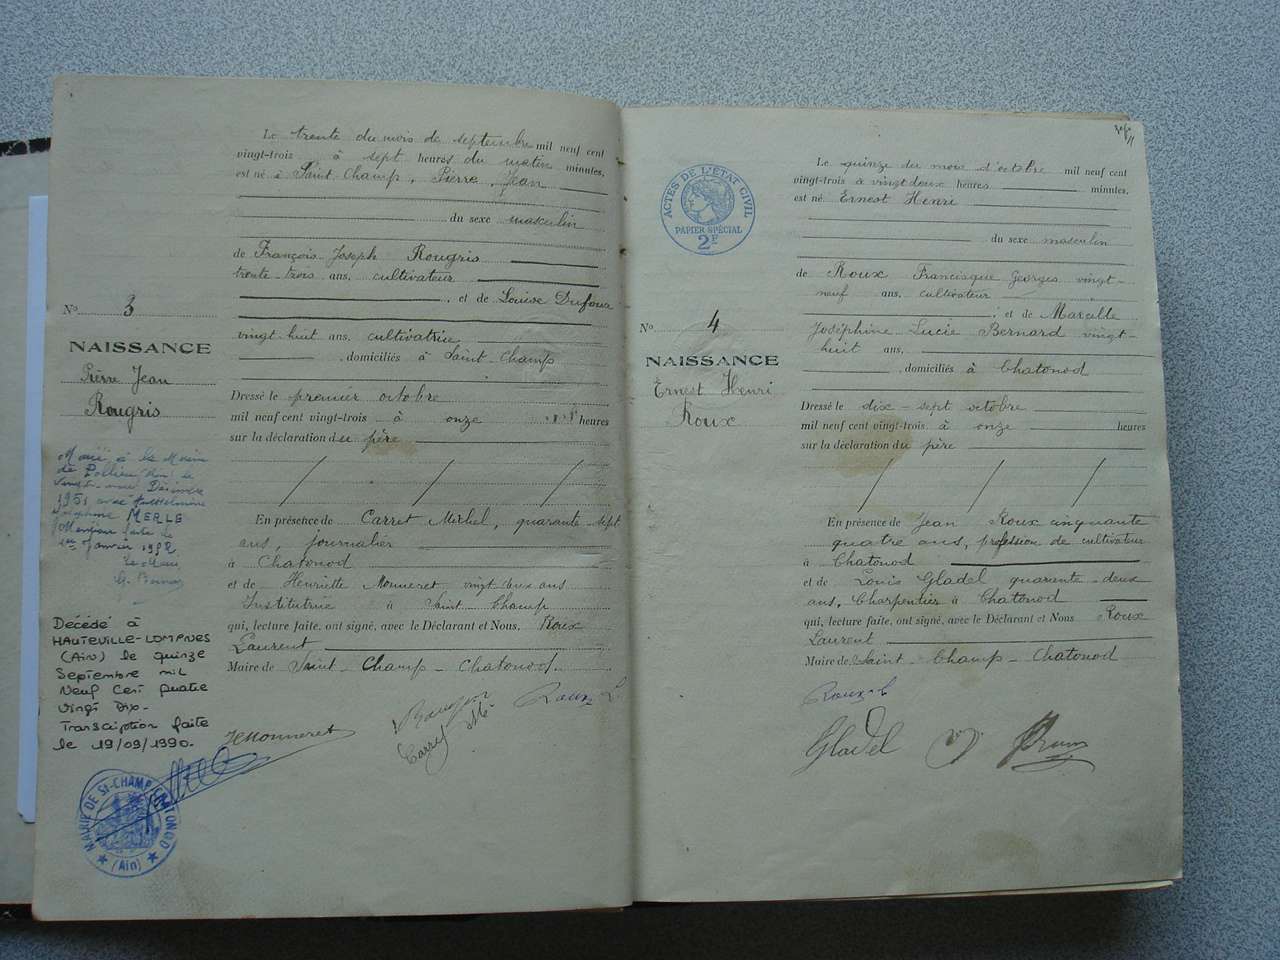 Le trente du mois de septembre mil neuf cent
vingt-trois à sept heures du matin minutes,
est né à Saint-Champ, Pierre, Jean
du sexe masculin
de François Joseph Rougris
trente-trois ans, cultivateur
, et de Louise Dufour
vingt-huit ans, cultivatrice
, domiciliés à Saint-Champ
Dressé le premier octobre
mil neuf cent vingt-trois à onze heures
sur la déclaration du père
En présence de Carret Michel, quarante-sept
ans, journalier
à Chatonod
et de Henriette Monneret, vingt-deux ans
Institutrice à Saint Champ
qui, lecture faite, ont signé, avec le Déclarant et Nous, Roux
Laurent
Maire de Saint-Champ-Chatonod
HMonneret
Rougris
Carret Mel
Roux L
No 3
NAISSANCE
Pierre Jean
Rougris
Marié à la Mairie
de Pollieu (Ain) le
Vingt-neuf Décembre
1951 avec
MERLE
Mention faite le
Janvier 1952
Le Maire
Décédé à
HAUTEVILLE-LOMPNES
(Ain) le quinze
Septembre mil
Neuf Cent Quatre
Vingt Dix-
Transcription faite
le 19/09/1990.
MAIRIE DE ST-CHAMP CHATONOD
(Ain)
ACTES DE L'ÉTAT CIVIL
PAPIER SPÉCIAL
2F
No 4
NAISSANCE
Ernest Henri
Roux
Le quinze du mois d'octobre mil neuf cent
vingt-trois à vingt deux heures minutes,
est né Ernest Henri
du sexe masculin
de Roux Francisque Georges vingt-
neuf ans, cultivateur
; et de Marcelle
Joséphine Lucie Bernard vingt-
huit ans,
, domiciliés à Chatonod
Dressé le dix-sept octobre
mil neuf cent vingt-trois à onze heures
sur la déclaration du père
En présence de Jean Roux cinquante
quatre ans, profession de cultivateur
à Chatonod
et de Louis Gladel quarante-deux
ans, Charpentier à Chatonod
qui, lecture faite, ont signé, avec le Déclarant et Nous Roux
Laurent
Maire de Saint-Champ-Chatonod
Roux L
Gladel
Roux